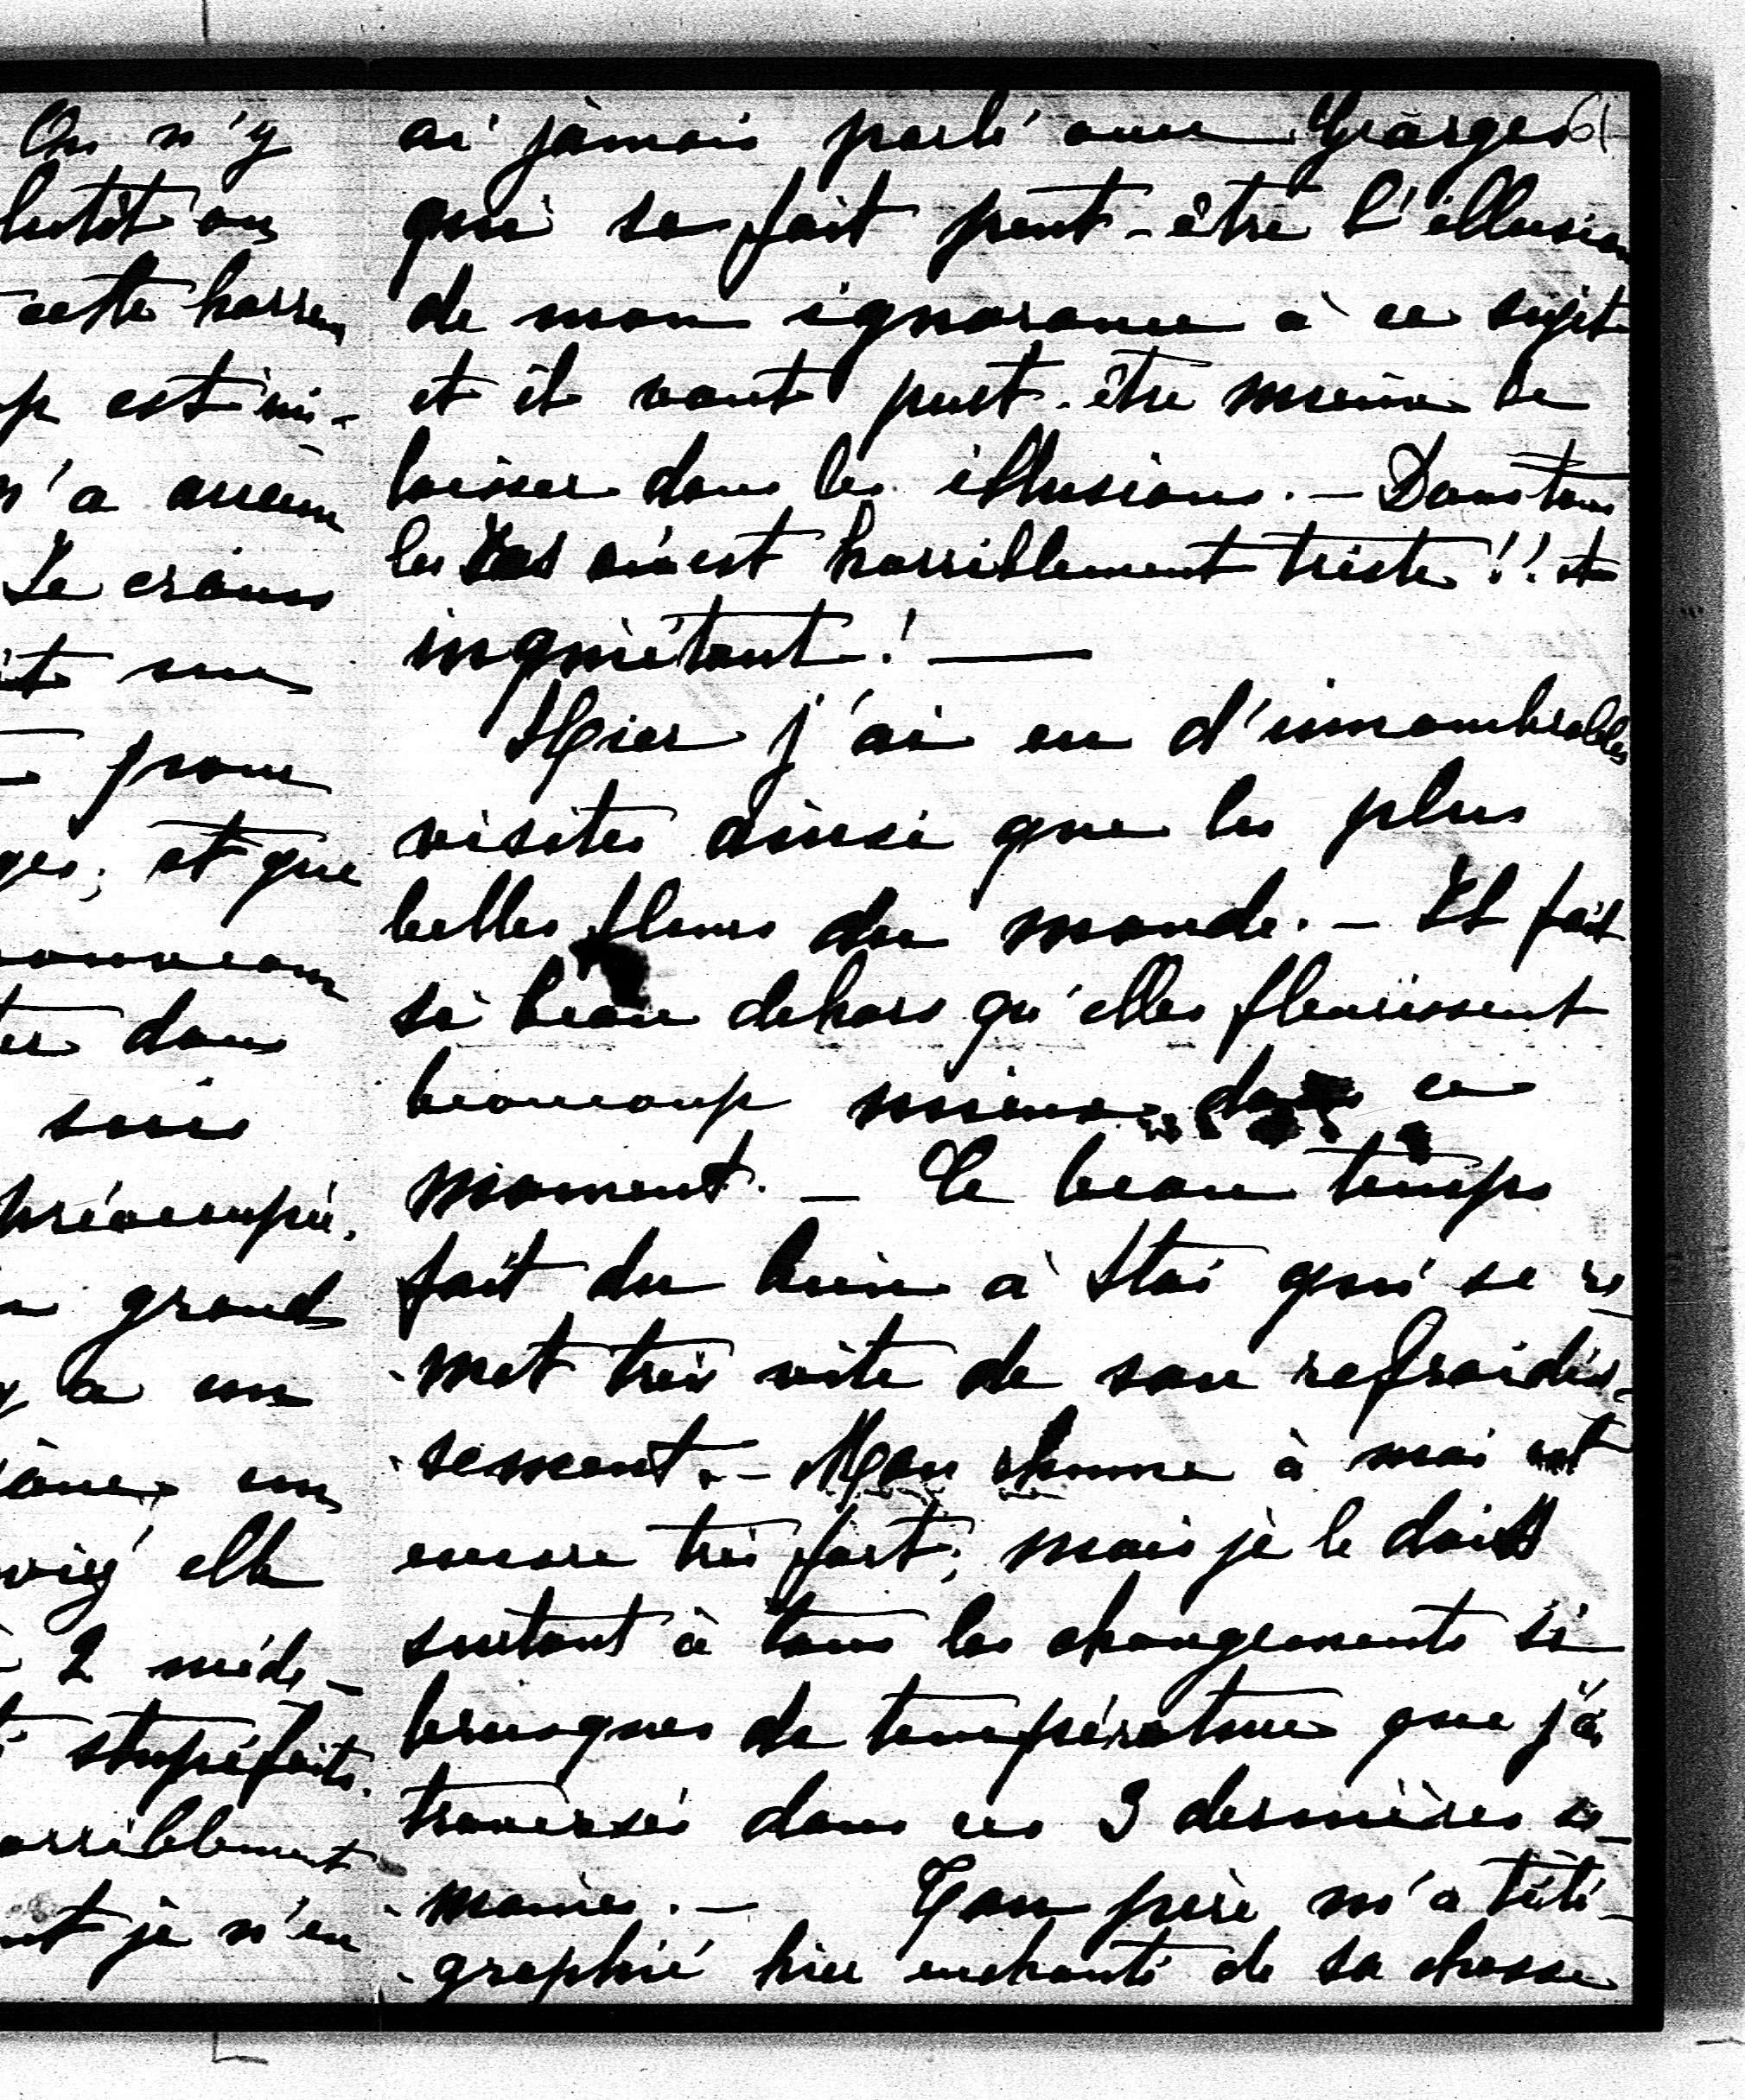 On n'y
lutôt on
cette horreu
p est im-
n'a aucun
Je crains
it sur
pour
ges, et que
nouveau
ter dans
suis
préoccupée.
grand
y a un
un
elle
2 méde-
stupéfaits.
orriblement
nt je n'en
ai jamais parlé avec Georges 61
qui se fait peut-être l'illusion
de mon ignorance à ce sujet
et il vaut peut-être mieux le
laisser dans les illusions. — Dans tous
les cas c'est horriblement triste!! et
inquiétant! —
Hier j'ai eu d'innombrables
visites ainsi que les plus
belles fleurs du monde. — Il fait
si beau dehors qu'elles fleurissent
beaucoup mieux dans ce
moment. — Ce beau temps
fait du bien à Stoi qui se re-
met très vite de son refroidis-
sement. — Mon rhume à moi est
encore très fort; mais je le dois
surtout à tous les changements si
brusques de température que j'ai
traversés dans ces 3 dernières se-
maines. — Ton père m'a télé-
graphié hier enchanté de sa chasse